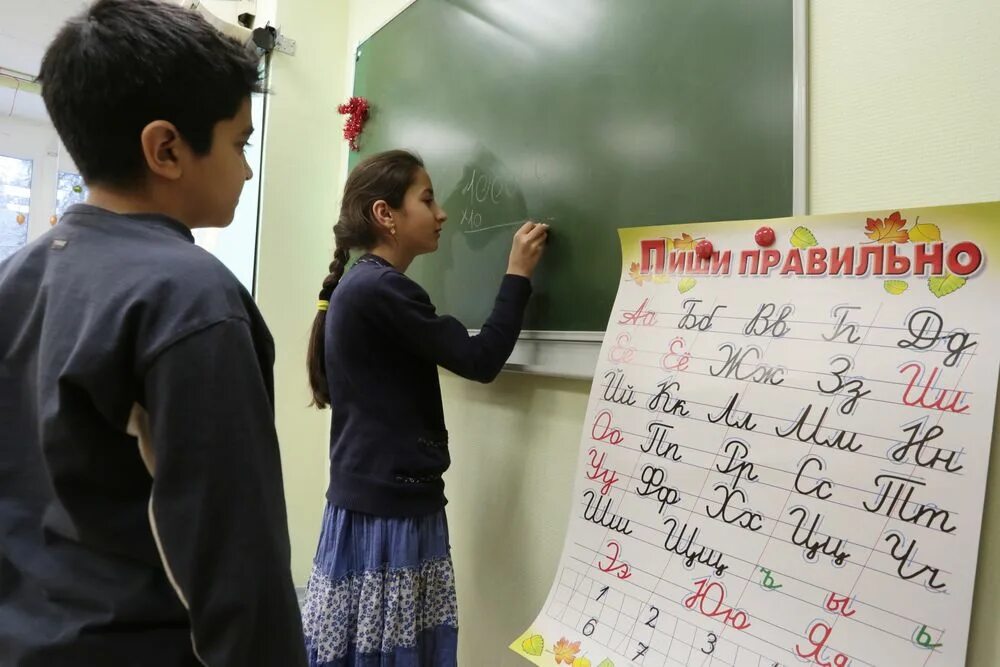 1000
Пиши правильно
Аа Бб Вв Гг Дд
Ее Ёё Жж Зз Ии
Йй Кк Лл Мм Нн
Оо Пп Рр Сс Тт
Уу Фф Хх Цц Чч
Шш Щщ ъ ы ь
Ээ Юю Яя
1 2 3
6 7